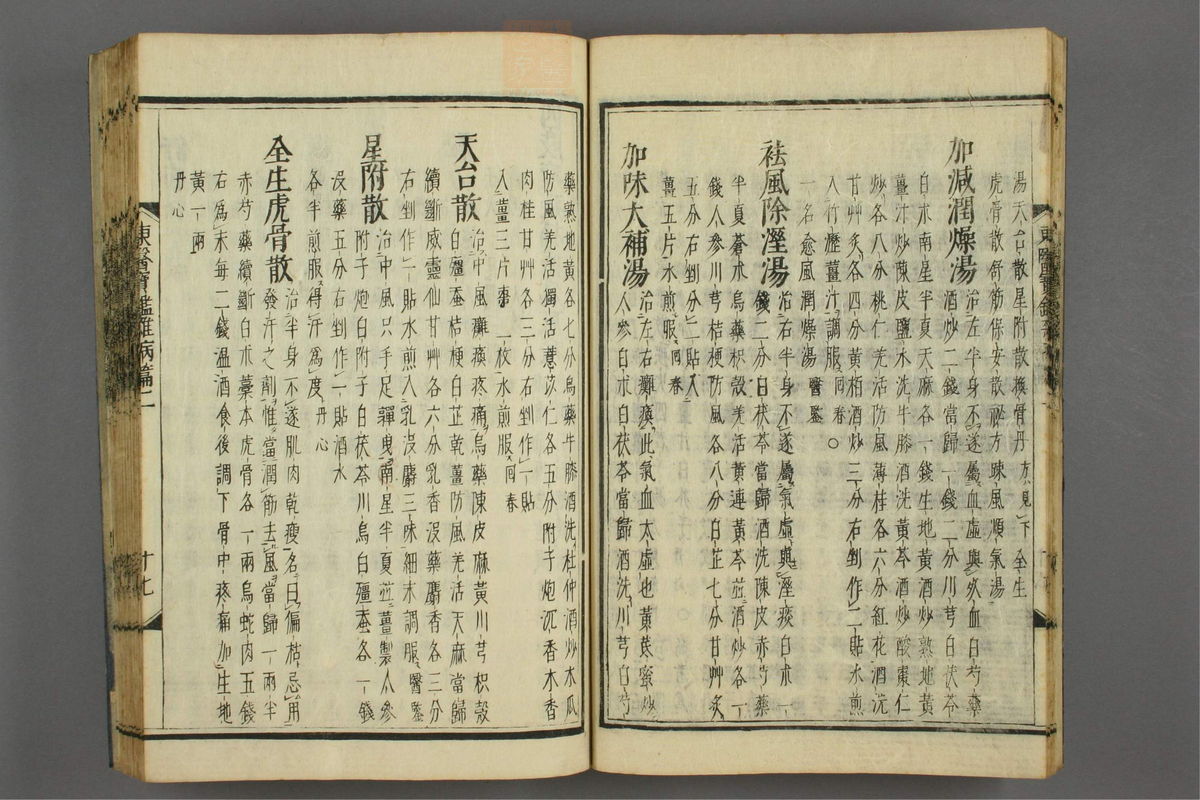 湯天台散星附散換骨丹方見下全生
虎骨散舒筋保安散祕方睞風順氣湯
加減潤燥湯治左半身不遂屬血虛與死血白芍藥
酒炒二錢當歸一錢二分川芎白茯苓
白朮南星半夏天麻各一錢生地黃酒炒熟地黃
薑汁炒陳皮鹽水洗牛膝酒洗黃芩酒炒酸棗仁
炒各八分桃仁羌活防風薄桂各六分紅花酒洗
甘艸炙各四分黃栢酒炒三分右剉作二貼水煎
入竹瀝薑汁調服同春○
一名愈風潤燥湯醫鑒
袪風除溼湯治右半身不遂屬氣虛與溼痰白朮一
錢二分白茯苓當歸酒洗陳皮赤芍藥
半夏蒼朮烏藥枳殼羌活黃連黃芩並酒炒各一
錢人參川芎桔梗防風各八分白芷七分甘艸炙
五分右剉分二貼入
薑五片水煎服同春
加味大補湯治左右癱瘓此氣血大虛也黃芪蜜炒
人參白朮白茯苓當歸酒洗川芎白芍
藥熟地黃各七分烏藥牛膝酒洗杜仲酒炒木瓜
防風羌活獨活薏苡仁各五分附子炮沉香木香
肉桂甘艸各三分右剉作一貼
入薑三片棗一枚水煎服同春
天台散治中風癱瘓疼痛烏藥陳皮麻黃川芎枳殼
白殭蚕桔梗白芷乾薑防風羌活天麻當歸
續斷威靈仙甘艸各六分乳香沒藥麝香各三分
右剉作一貼水煎入乳沒麝三味細末調服醫鑒
星附散治中風只手足嚲曳南星半夏並薑製人參
附子炮白附子白茯苓川烏白殭蚕各一錢
沒藥五分右剉作一貼酒水
各半煎服得汗爲度丹心
全生虎骨散治半身不遂肌肉乾瘦名曰偏枯忌用
發汗之劑惟當潤筋去風當歸一兩半
赤芍藥續斷白朮藁本虎骨各一兩烏蛇肉五錢
右爲末每二錢温酒食後調下骨中疼痛加生地
黃一兩
丹心
東醫寶鑑雜病篇二
十七